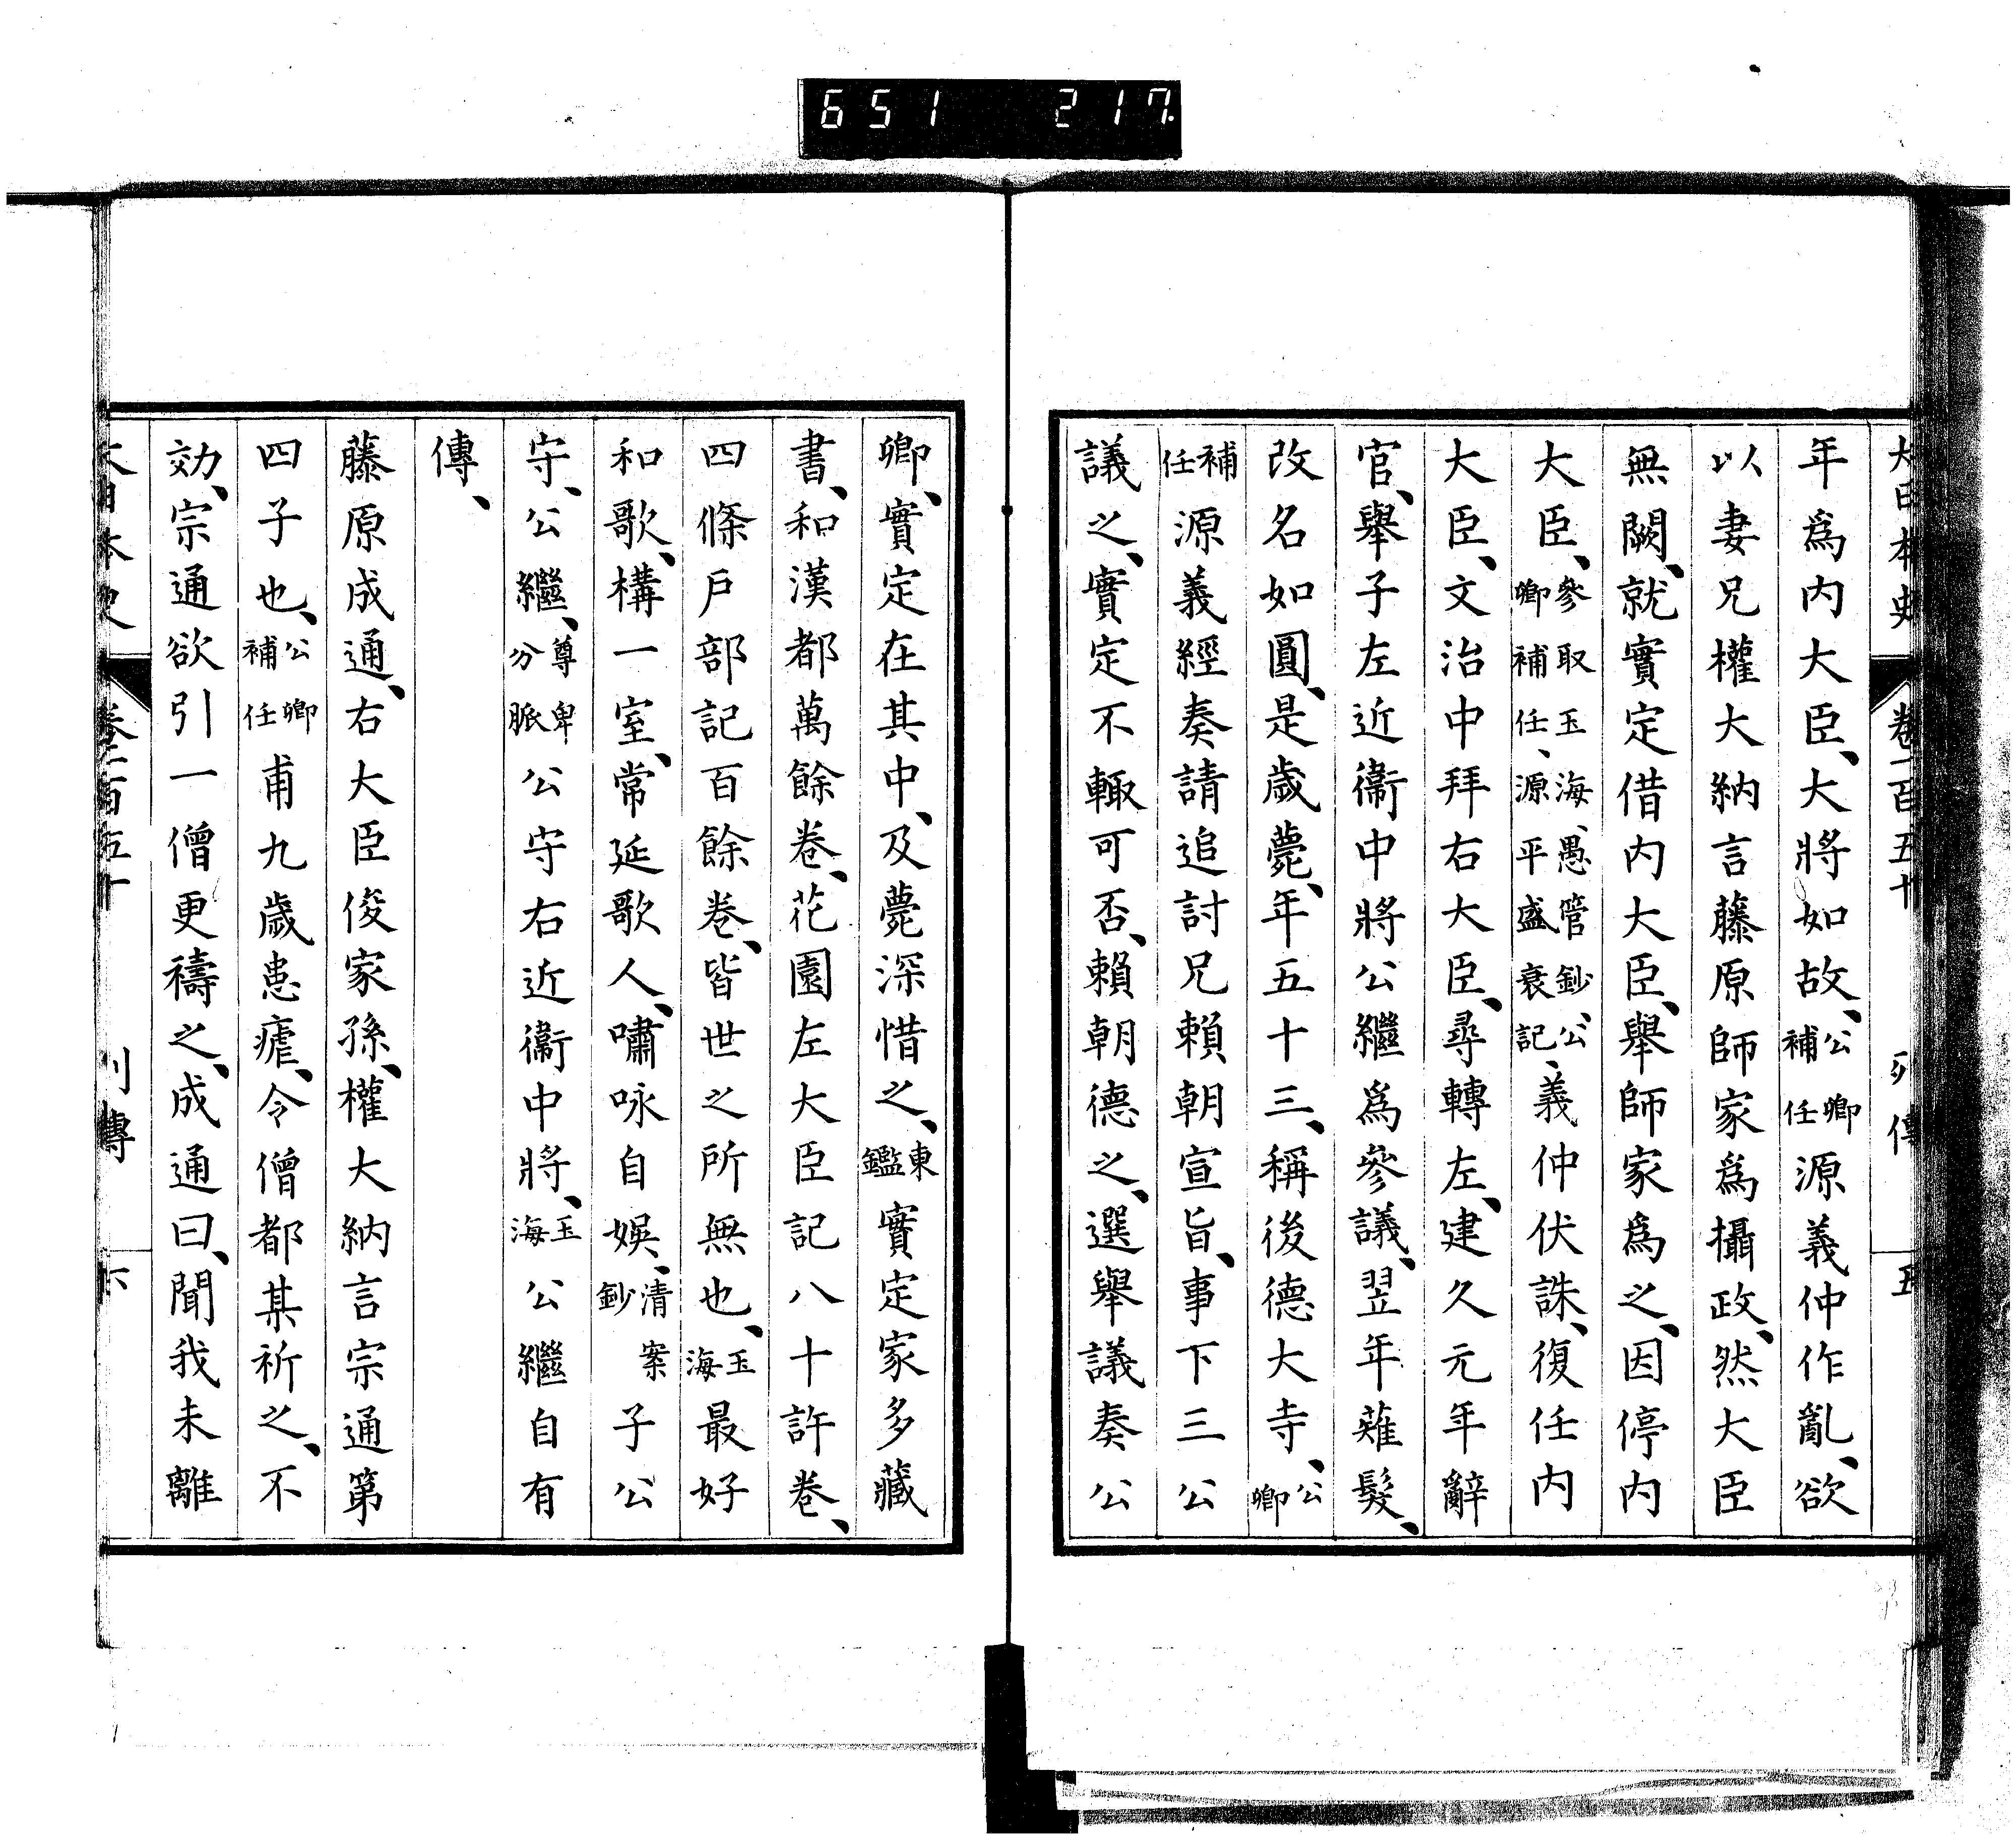 651 217.
大日本史 卷一百五十 列傳 五
年爲内大臣、大將如故、公卿補任源義仲作亂、欲
以妻兄權大納言藤原師家爲攝政、然大臣
無闕、就實定借内大臣、舉師家爲之、因停内
大臣、參取玉海、愚管鈔、公卿補任、源平盛衰記、義仲伏誅、復任内
大臣、文治中拜右大臣、尋轉左、建久元年辭
官、舉子左近衞中將公繼爲參議、翌年薙髮、
改名如圓、是歳薨、年五十三、稱後德大寺、公卿
補任源義經奏請追討兄賴朝宣旨、事下三公
議之、實定不輙可否、賴朝德之、選舉議奏公
卿、實定在其中、及薨深惜之、東鑑實定家多藏
書、和漢都萬餘卷、花園左大臣記八十許卷、
四條戸部記百餘卷、皆世之所無也、玉海最好
和歌、構一室、常延歌人、嘯咏自娯、清案鈔子公
守、公繼、尊卑分脈公守右近衞中將、玉海公繼自有
傳、
藤原成通、右大臣俊家孫、權大納言宗通第
四子也、公卿補任甫九歳患瘧、令僧都某祈之、不
効、宗通欲引一僧更禱之、成通曰、聞我未離
大日本史 卷一百五十 列傳 六